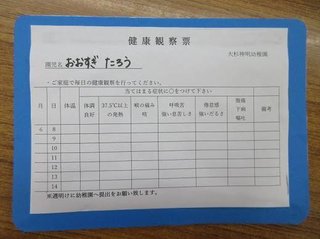 健康観察票
大杉神明幼稚園
園児名 おおすぎ たろう
・ご家庭で毎日の健康観察を行ってください。
当てはまる症状に○をつけて下さい
月 日 体温 体調良好 37.5℃以上の発熱 喉の痛み 咳 呼吸苦 強い息苦しさ 倦怠感 強いだるさ 腹痛 下痢 嘔吐 備考
6 8
9
10
11
12
13
14
※週明けに幼稚園へ提出をお願い致します。